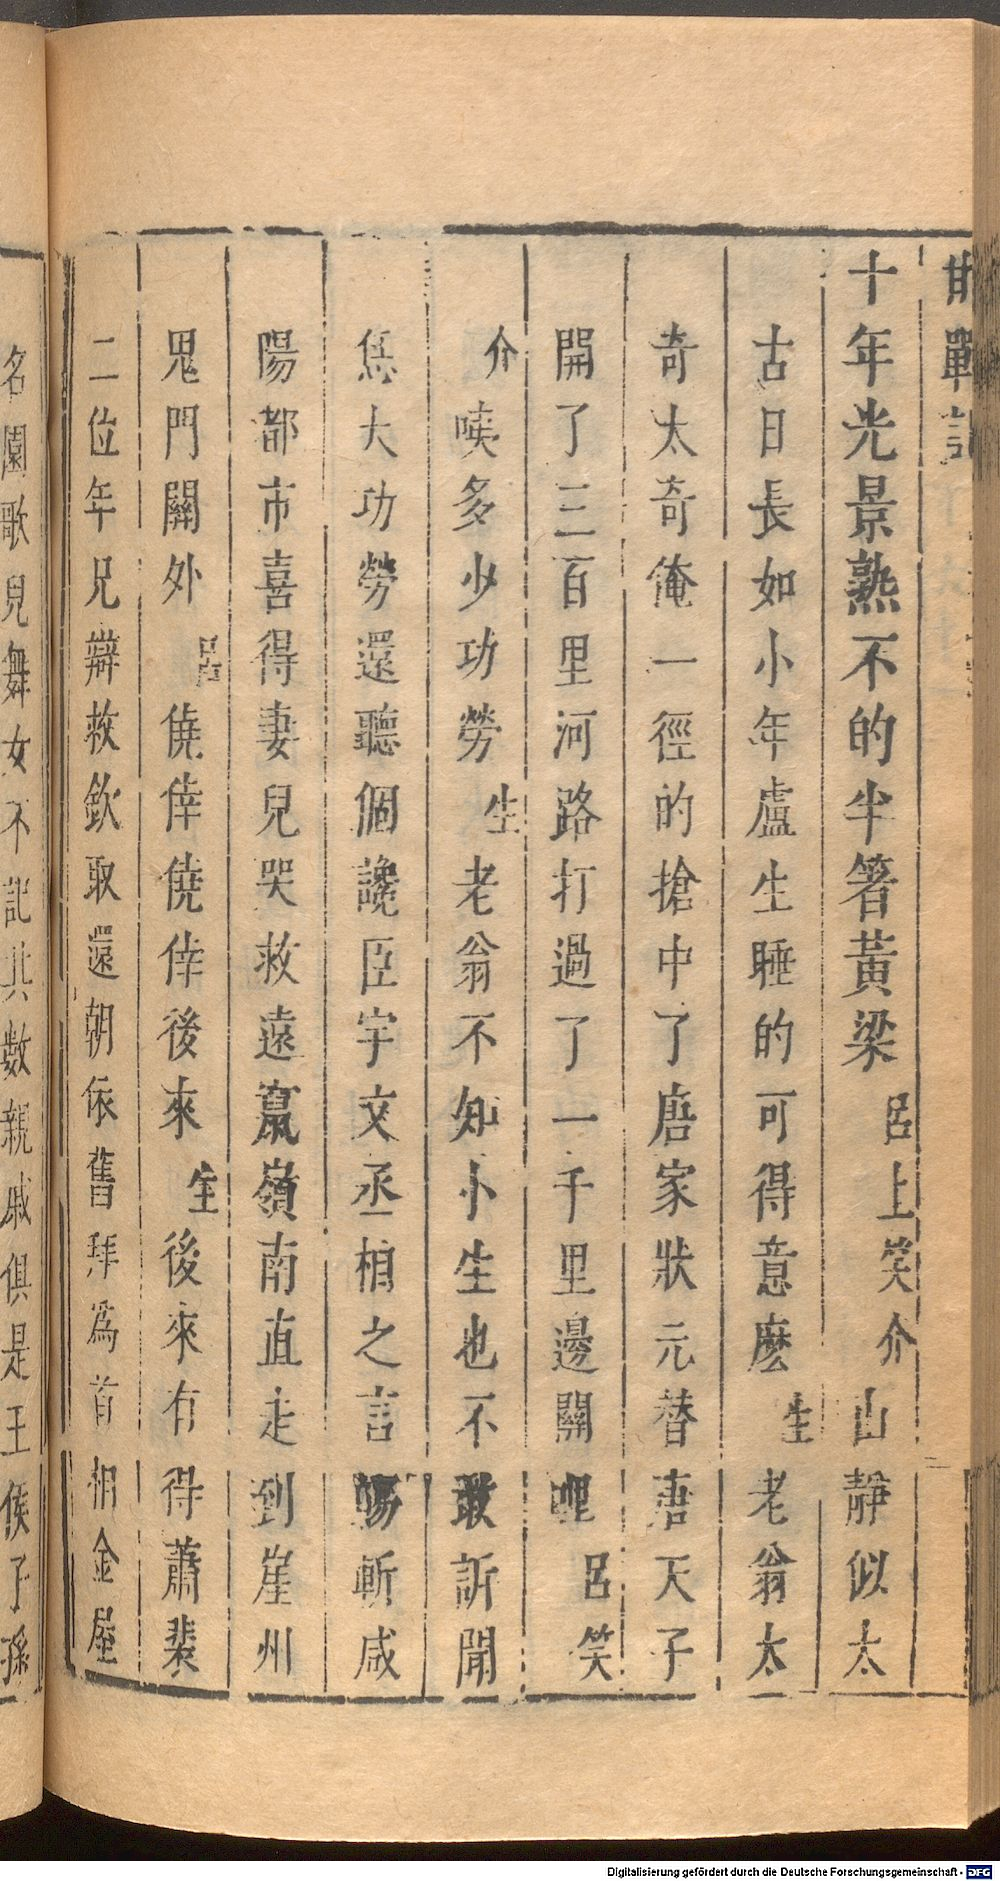 邯鄲記
十年光景熟不的半箸黃梁 呂上笑介 山靜似太
古日長如小年盧生睡的可得意麽 生 老翁太
奇太奇俺一徑的搶中了唐家狀元替唐天子
開了三百里河路打過了一千里邊關哩 呂笑
介 唉多少功勞 生 老翁不知小生也不敢訴聞
爲大功勞還聽個讒臣宇文丞相之言賜斬咸
陽都市喜得妻兒哭救遠竄嶺南直走到崖州
鬼門關外 呂 僥倖僥倖後來 生 後來有得蕭裴
二位年兄辯救欽取還朝依舊拜爲首相金屋
名園歌兒舞女不記其數親戚俱是王侯子孫
Digitalisierung gefördert durch die Deutsche Forschungsgemeinschaft - DFG